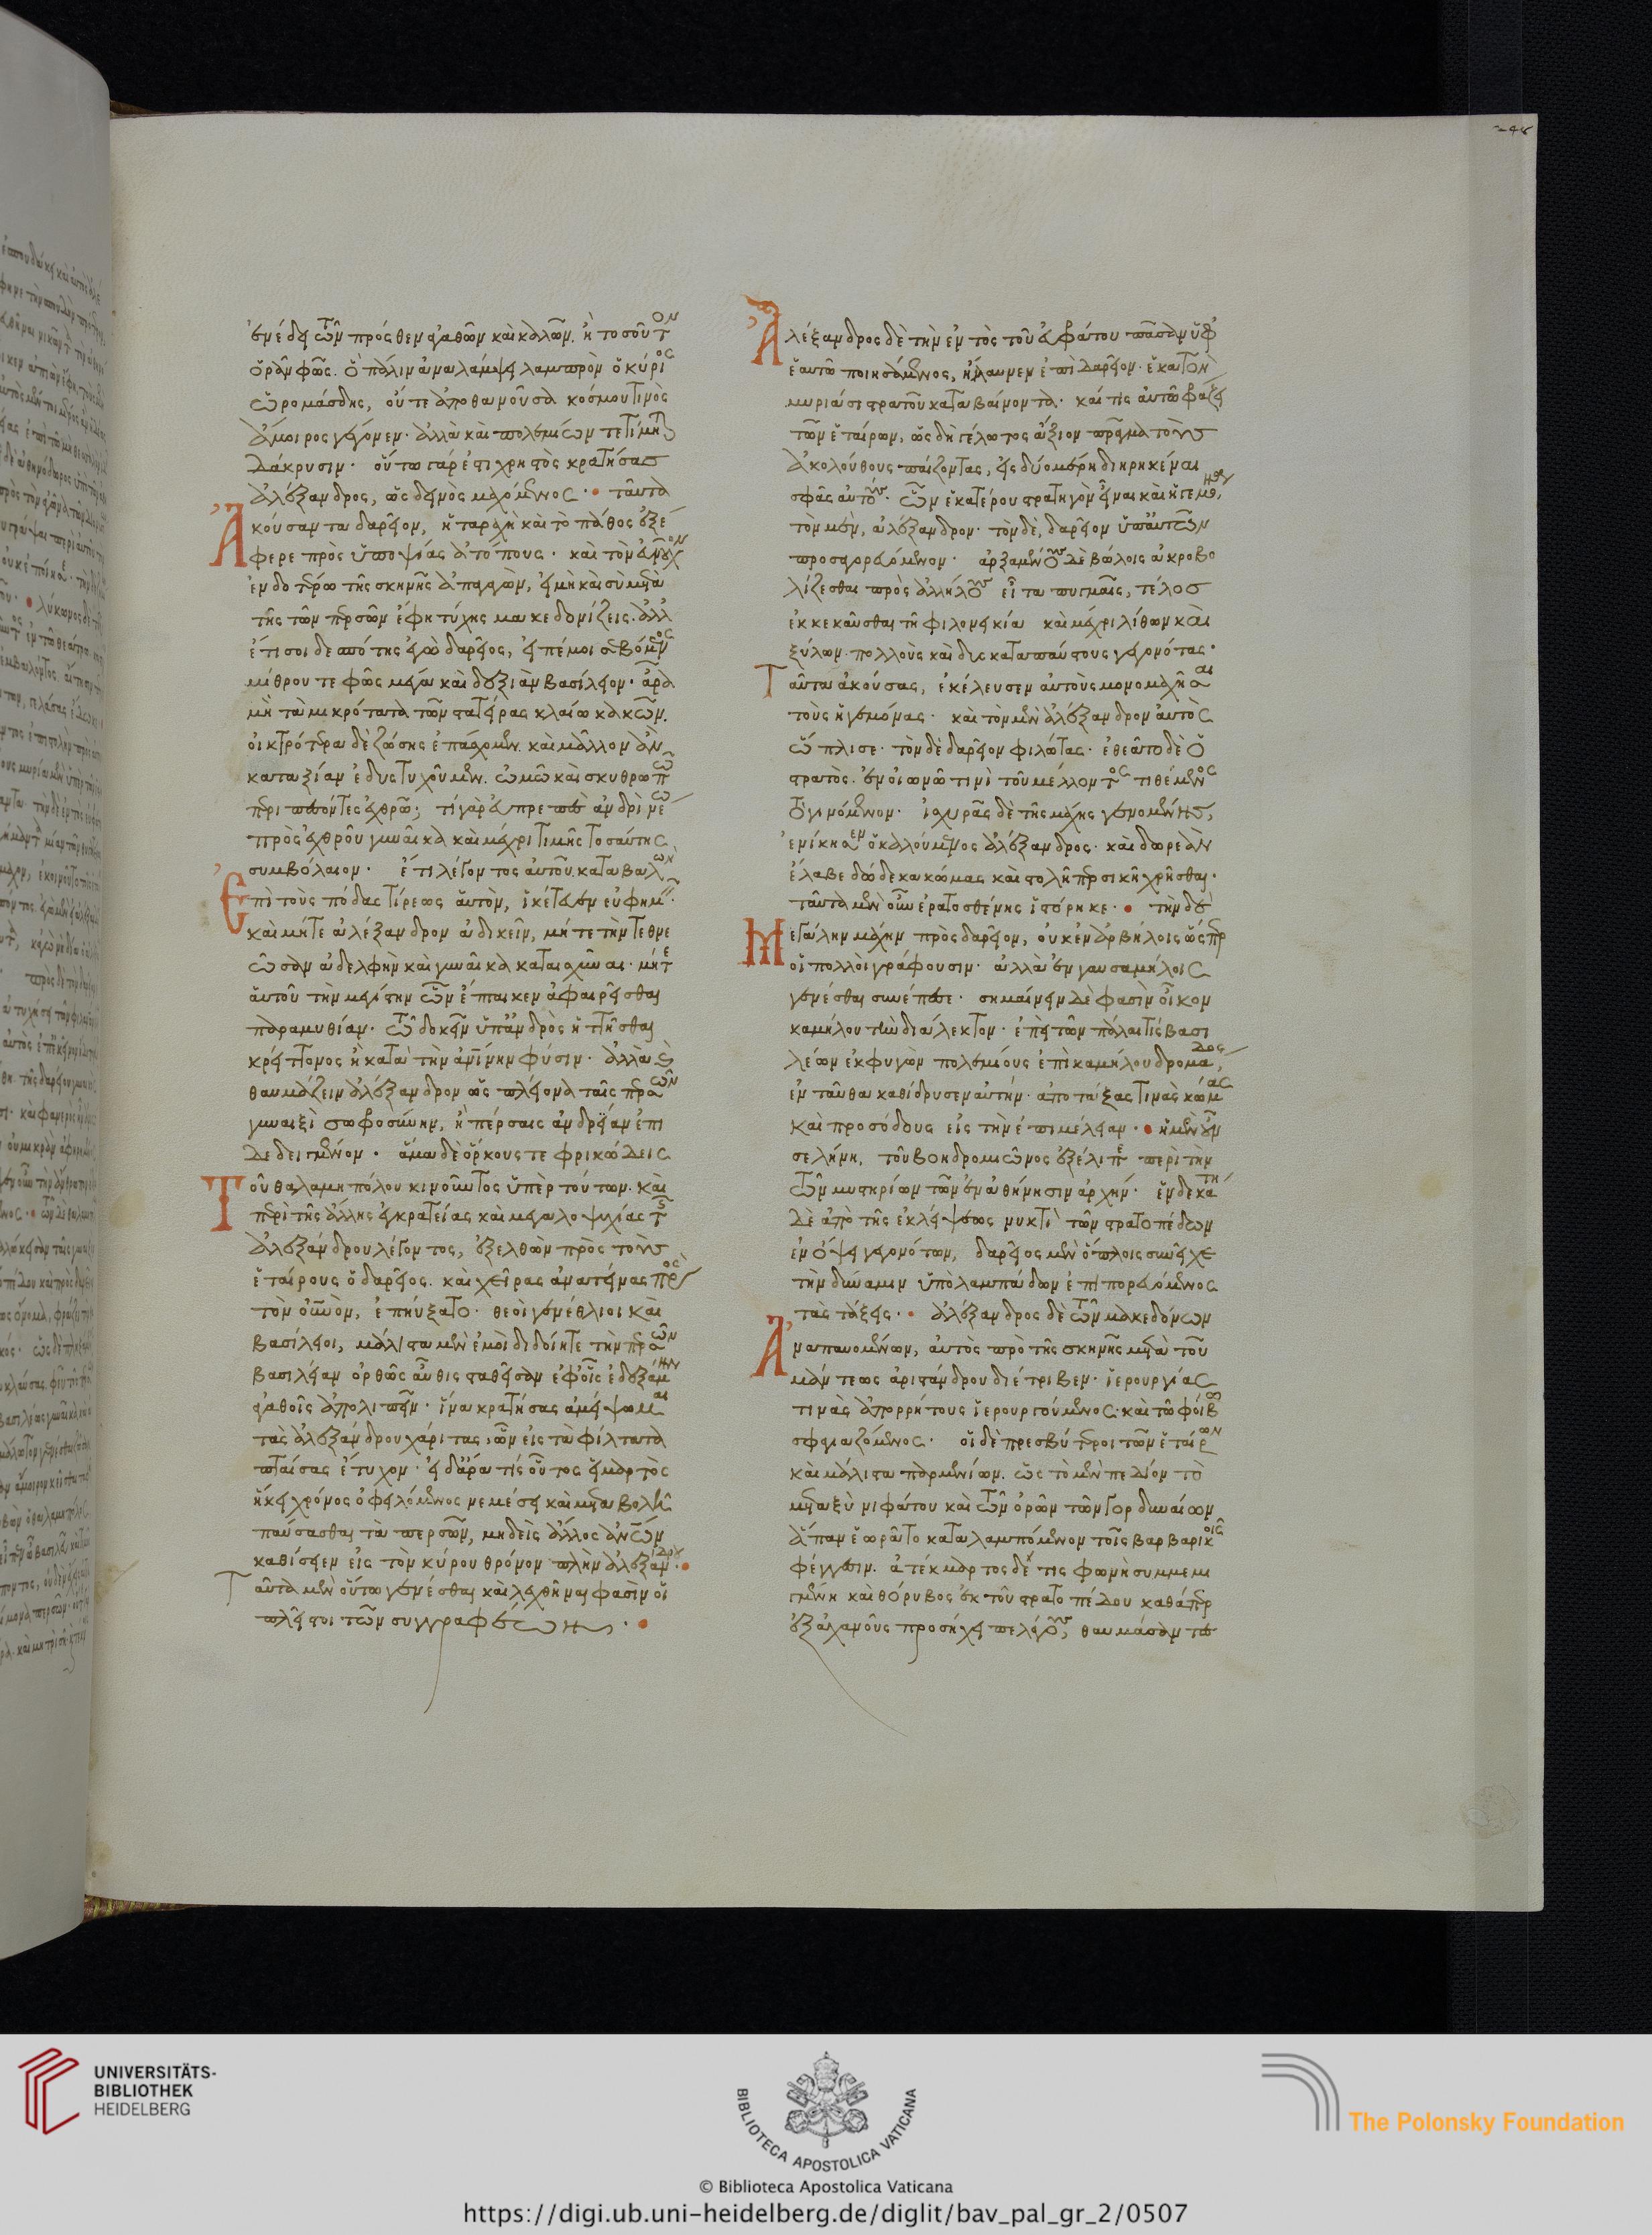 ἐνέδει τῶν πρόσθεν ἀγαθῶν καὶ καλῶν. ἢ τὸ σοῦτον
ὁρᾶν φῶς. ὃ πάλιν ἀναλάμψει λαμπρὸν ὁ κύριος
ὡρομάσδης, οὔτε ἀποθανοῦσα κόσμου τινὸς
ἄμοιρος γέγονεν· ἀλλὰ καὶ πολεμίων τετίμηται
δάκρυσιν· οὕτω γάρ ἐστι χρηστὸς κρατήσας
ἀλέξανδρος, ὡς δεινὸς μαχόμενος· ταῦτα
ἀκούσαντα δαρεῖον, ἡ ταραχὴ καὶ τὸ πάθος ἐξέ
φερε πρὸς ὑποψίας ἀτόπους· καὶ τὸν εὐνοῦχον
ἐνδοτέρω τῆς σκηνῆς ἀπαγαγὼν, εἰ μὴ καὶ σὺ μετὰ
τῆς τῶν περσῶν ἔφη τύχης μακεδονίζεις. ἀλλ
ἔτι σοι δεσπότης ἐγὼ δαρεῖος, εἰπέ μοι σεβόμενος
μίθρου τε φῶς μέγα καὶ δεξιὰν βασίλειον· ἆρα
μὴ τὰ μικρότατα τῶν στατείρας κλαίω κακῶν.
οἰκτρότερα δὲ ζώσης ἐπάσχομεν. καὶ μᾶλλον ἂν
κατ' ἀξίαν ἐδυστυχοῦμεν. ὠμῷ καὶ σκυθρωπῷ
περιπεσόντες ἐχθρῷ; τί γὰρ εὐπρεπὲς ἀνδρὶ νέῳ
πρὸς ἐχθροῦ γυναῖκα καὶ μέχρι τιμῆς τοσαύτης
συμβόλαιον· ἔτι λέγοντος αὐτοῦ καταβαλὼν
ἐπὶ τοὺς πόδας τίρεως αὑτὸν, ἱκέτευεν εὐφημεῖν·
καὶ μήτε ἀλέξανδρον ἀδικεῖν, μήτε τὴν τεθνε
ῶσαν ἀδελφὴν καὶ γυναῖκα καταισχύναι· μήτε
αὑτοῦ τὴν μεγίστην ὧν ἔπταικεν ἀφαιρεῖσθαι
παραμυθίαν· τῷ δοκεῖν ὑπ' ἀνδρὸς ἡττῆσθαι
κρείττονος ἢ κατὰ τὴν ἀνθρωπίνην φύσιν· ἀλλὰ καὶ
θαυμάζειν ἀλέξανδρον ὡς πλείονα ταῖς περσῶν
γυναιξὶ σωφροσύνην, ἢ πέρσαις ἀνδρείαν ἐπι
δεδειγμένον· ἅμα δὲ ὅρκους τε φρικώδεις
τοῦ θαλαμηπόλου κινοῦντος ὑπὲρ τούτων. καὶ
περὶ τῆς ἄλλης ἐγκρατείας καὶ μεγαλοψυχίας τῆς
ἀλεξάνδρου λέγοντος, ἐξελθὼν πρὸς τοὺς
ἑταίρους ὁ δαρεῖος. καὶ χεῖρας ἀνατείνας πρὸς
τὸν οὐρανὸν, ἐπηύξατο· θεοὶ γενέθλιοι καὶ
βασίλειοι, μάλιστα μὲν ἐμοὶ διδοίητε τὴν περσῶν
βασιλείαν ὀρθῶς αὖθις σταθεῖσαν ἐφ' οἷς ἐδεξάμην
ἀγαθοῖς ἀπολιπεῖν· ἵνα κρατήσας ἀμείψωμαι
τὰς ἀλεξάνδρου χάριτας, ὧν εἰς τὰ φίλτατα
πταίσας ἔτυχον· εἰ δ' ἄρα τίς οὗτος εἱμαρτὸς
ἥκει χρόνος ὀφειλόμενος νεμέσει καὶ μεταβολῇ
παύσασθαι τὰ περσῶν, μηδεὶς ἄλλος ἀνθρώπων
καθίσειεν εἰς τὸν κύρου θρόνον πλὴν ἀλεξάνδρου·
ταῦτα μὲν οὕτω γενέσθαι καὶ λεχθῆναι φασὶν οἱ
πλεῖστοι τῶν συγγραφέων·
ἀλέξανδρος δὲ τὴν ἐντὸς τοῦ εὐφράτου πᾶσαν ὑφ
ἑαυτῷ ποιησάμενος, ἤλαυνεν ἐπὶ δαρεῖον· ἑκατὸν
μυριάσι στρατοῦ καταβαίνοντα· καί τις αὐτῷ φράζει
τῶν ἑταίρων, ὡς δὴ γέλωτος ἄξιον πρᾶγμα τοὺς
ἀκολούθους παίζοντας, εἰς δύο μέρη διῃρηκέναι
σφᾶς αὐτούς· ὧν ἑκατέρου στρατηγὸν εἶναι καὶ ἡγεμόνα,
τὸν μὲν, ἀλέξανδρον· τὸν δὲ, δαρεῖον ὑπ' αὐτῶν
προσαγορευόμενον· ἀρξαμένους δὲ βώλοις ἀκροβο
λίζεσθαι πρὸς ἀλλήλους εἶτα πυγμαῖς, τέλος
ἐκκεκαῦσθαι τῇ φιλονεικίᾳ καὶ μέχρι λίθων καὶ
ξύλων· πολλοὺς καὶ δυσκαταπαύστους γεγονότας·
ταῦτα ἀκούσας, ἐκέλευσεν αὐτοὺς μονομαχῆσαι
τοὺς ἡγεμόνας· καὶ τὸν μὲν ἀλέξανδρον αὐτὸς
ὥπλισε· τὸν δὲ δαρεῖον φιλώτας· ἐθεᾶτο δὲ ὁ
στρατὸς· ἐν οἰωνῷ τινὶ τοῦ μέλλοντος τιθέμενος
τὸ γινόμενον· ἰσχυρᾶς δὲ τῆς μάχης γενομένης,
ἐνίκησεν ὁ καλούμενος ἀλέξανδρος· καὶ δωρεὰν
ἔλαβε δώδεκα κώμας καὶ στολῇ περσικῇ χρῆσθαι·
ταῦτα μὲν οὖν ἐρατοσθένης ἱστόρηκε· τὴν δὲ
μεγάλην μάχην πρὸς δαρεῖον, οὐκ ἐν ἀρβήλοις ὥσπερ
οἱ πολλοὶ γράφουσιν· ἀλλὰ ἐν γαυσαμήλοις
γενέσθαι συνέπεσε· σημαίνειν δὲ φασὶν οἶκον
καμήλου τὴν διάλεκτον· ἐπεὶ τῶν πάλαι τὶς βασι
λέων ἐκφυγὼν πολεμίους ἐπὶ καμήλου δρομάδος,
ἐνταῦθα καθίδρυσεν αὐτήν· ἀποτάξας τινὰς κώμας
καὶ προσόδους εἰς τὴν ἐπιμέλειαν· ἡ μὲν οὖν
σελήνη, τοῦ βοηδρομιῶνος ἐξέλιπε περὶ τὴν
τῶν μυστηρίων τῶν ἐν ἀθήνησιν ἀρχήν· ἑνδεκάτῃ
δὲ ἀπὸ τῆς ἐκλείψεως νυκτὶ τῶν στρατοπέδων
ἐν ὄψει γεγονότων, δαρεῖος μὲν ὅπλοις συνεῖχε
τὴν δύναμιν ὑπὸ λαμπάδων ἐπιπορευόμενος
τὰς τάξεις· ἀλέξανδρος δὲ τῶν μακεδόνων
ἀναπαυομένων, αὐτὸς πρὸ τῆς σκηνῆς μετὰ τοῦ
μάντεως ἀριστάνδρου διέτριβεν· ἱερουργίας
τινὰς ἀπορρήτους ἱερουργούμενος· καὶ τῷ φόβῳ
σφαγιαζόμενος· οἱ δὲ πρεσβύτεροι τῶν ἑταίρων
καὶ μάλιστα παρμενίων. ὡς τὸ μὲν πεδίον τὸ
μεταξὺ νιφάτου καὶ τῶν ὀρῶν τῶν γορδυαίων
ἅπαν ἑωρᾶτο καταλαμπόμενον τοῖς βαρβαρικοῖς
φέγγεσιν. ἀτέκμαρτος δέ τις φωνὴ συμμεμι
γμένη καὶ θόρυβος ἐκ τοῦ στρατοπέδου καθάπερ
ἐξ ἀχανοῦς προσήχει πελάγους, θαυμάσαντες
UNIVERSITÄTS-
BIBLIOTHEK
HEIDELBERG
BIBLIOTECA APOSTOLICA VATICANA
The Polonsky Foundation
© Biblioteca Apostolica Vaticana
https://digi.ub.uni-heidelberg.de/diglit/bav_pal_gr_2/0507